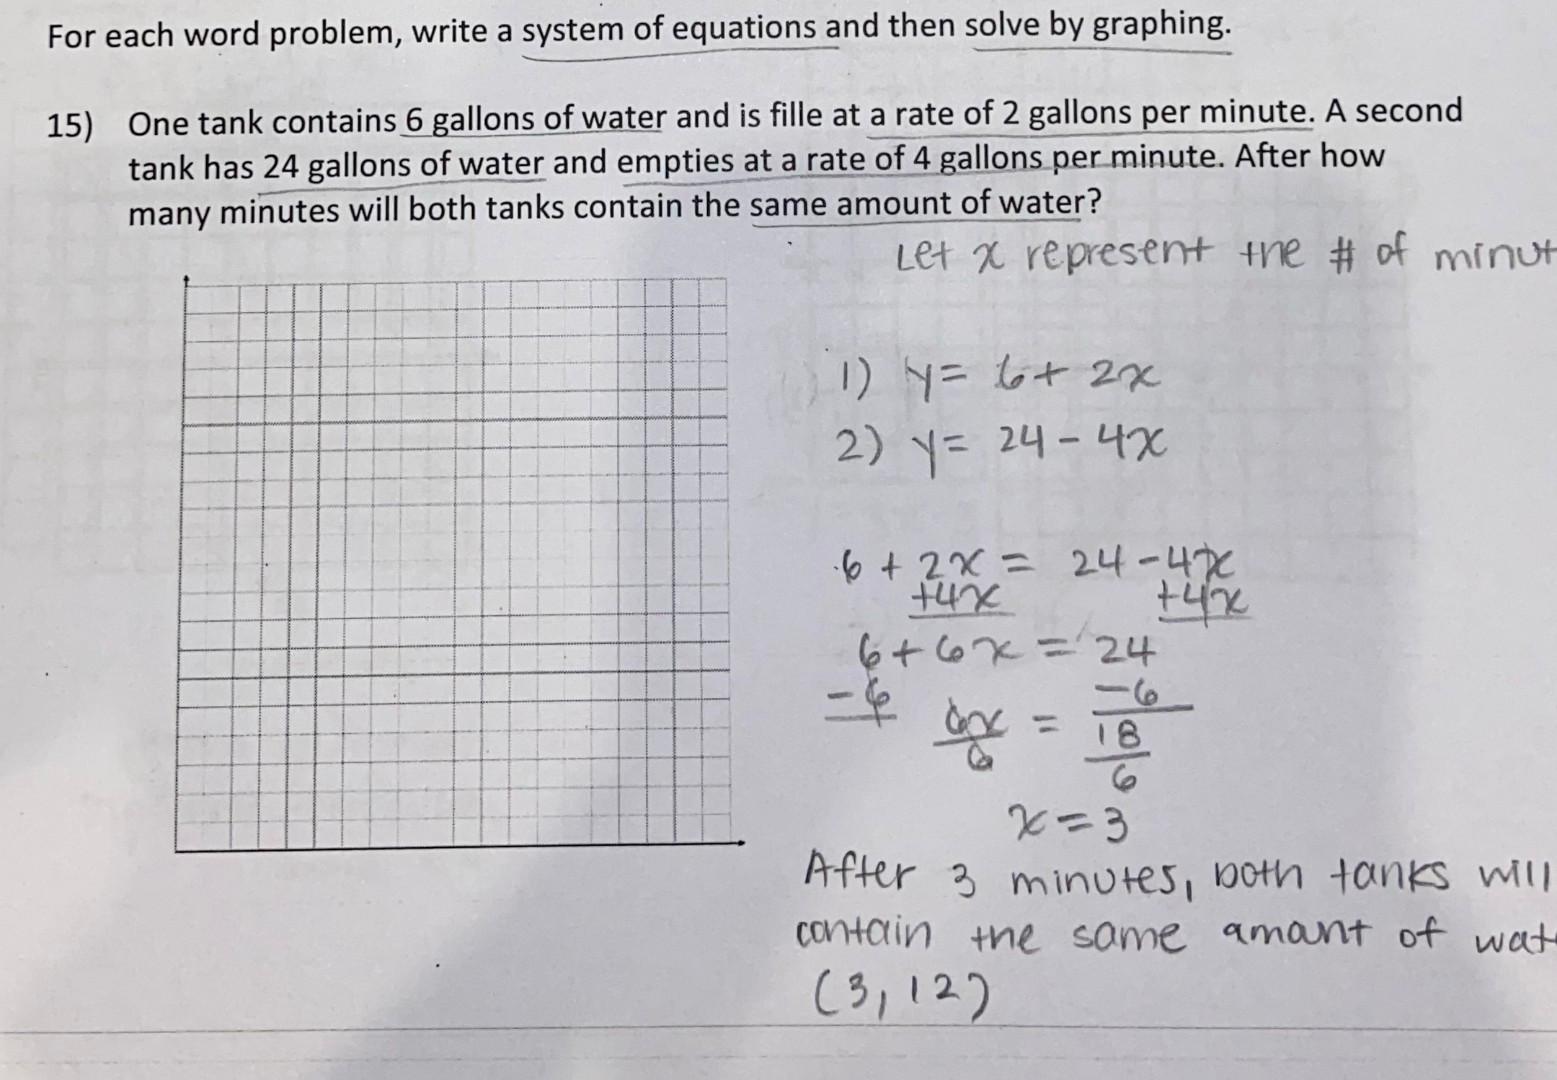 For each word problem, write a system of equations and then solve by graphing.
15) One tank contains 6 gallons of water and is fille at a rate of 2 gallons per minute. A second
tank has 24 gallons of water and empties at a rate of 4 gallons per minute. After how
many minutes will both tanks contain the same amount of water?
Let x represent the # of minut
1) y = 6 + 2x
2) y = 24 - 4x
6 + 2x = 24 - 4x
+4x +4x
6 + 6x = 24
-6 -6
6x/6 = 18/6
x = 3
After 3 minutes, both tanks will
contain the same amant of wat
(3, 12)